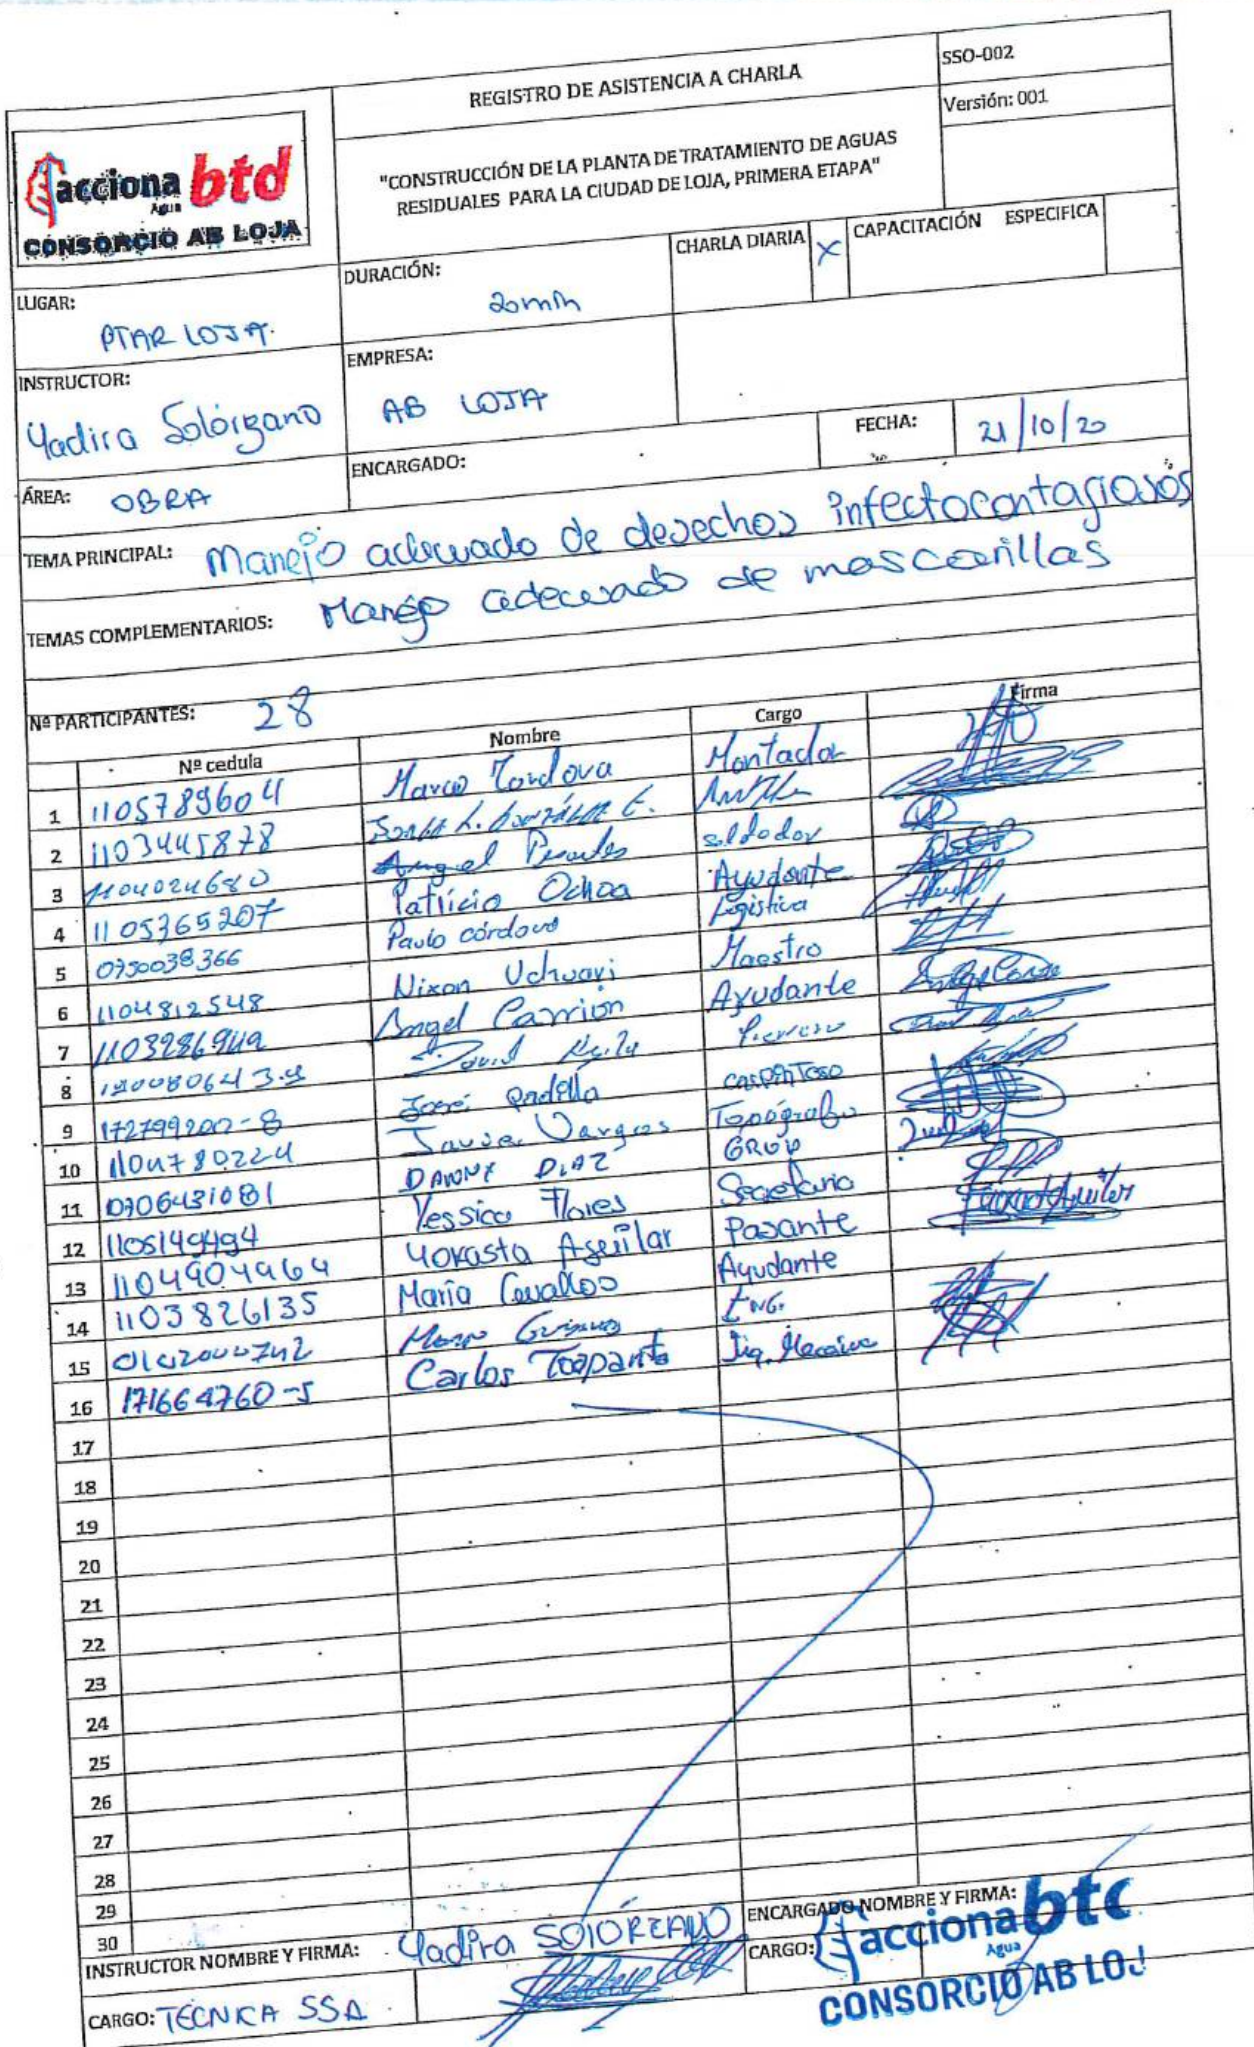 REGISTRO DE ASISTENCIA A CHARLA
SSO-002
Versión: 001
acciona btd
Agua
CONSORCIO AB LOJA
"CONSTRUCCIÓN DE LA PLANTA DE TRATAMIENTO DE AGUAS
RESIDUALES PARA LA CIUDAD DE LOJA, PRIMERA ETAPA"
LUGAR: PTAR LOJA.
DURACIÓN: 20 min
CHARLA DIARIA X
CAPACITACIÓN ESPECIFICA
INSTRUCTOR: Yadira Solórzano
EMPRESA: AB LOJA
ÁREA: OBRA
ENCARGADO:
FECHA: 21/10/20
TEMA PRINCIPAL: Manejo adecuado de desechos infectocontagiosos
TEMAS COMPLEMENTARIOS: Manejo adecuado de mascarillas
Nº PARTICIPANTES: 28
Nº cedula Nombre Cargo Firma
1 1105789604 Marco Cordova Montador
2 1103445878
3 1104024680 Angel soldador
4 1105365207 Patricio Ochoa Ayudante
5 0750038366 Paulo córdova Logistica
6 1104812548 Nixon Uchuari Maestro
7 Angel Carrión Ayudante
8 David
9 172799200-8 José Padilla carpintero
10 1104780224 Javier Vargas Topógrafo
11 0706431081 DANNY DIAZ
12 1105149494 Yessica Flores Secretaria
13 1104904964 Yokasta Aguilar Pasante
14 1103826135 María Cevallos Ayudante
15 ING.
16 171664760-5 Carlos Toapanta Ing.
17
18
19
20
21
22
23
24
25
26
27
28
29
30
INSTRUCTOR NOMBRE Y FIRMA: Yadira SOLÓRZANO
ENCARGADO NOMBRE Y FIRMA:
CARGO: TECNICA SSA
CARGO:
acciona btc
Agua
CONSORCIO AB LOJ